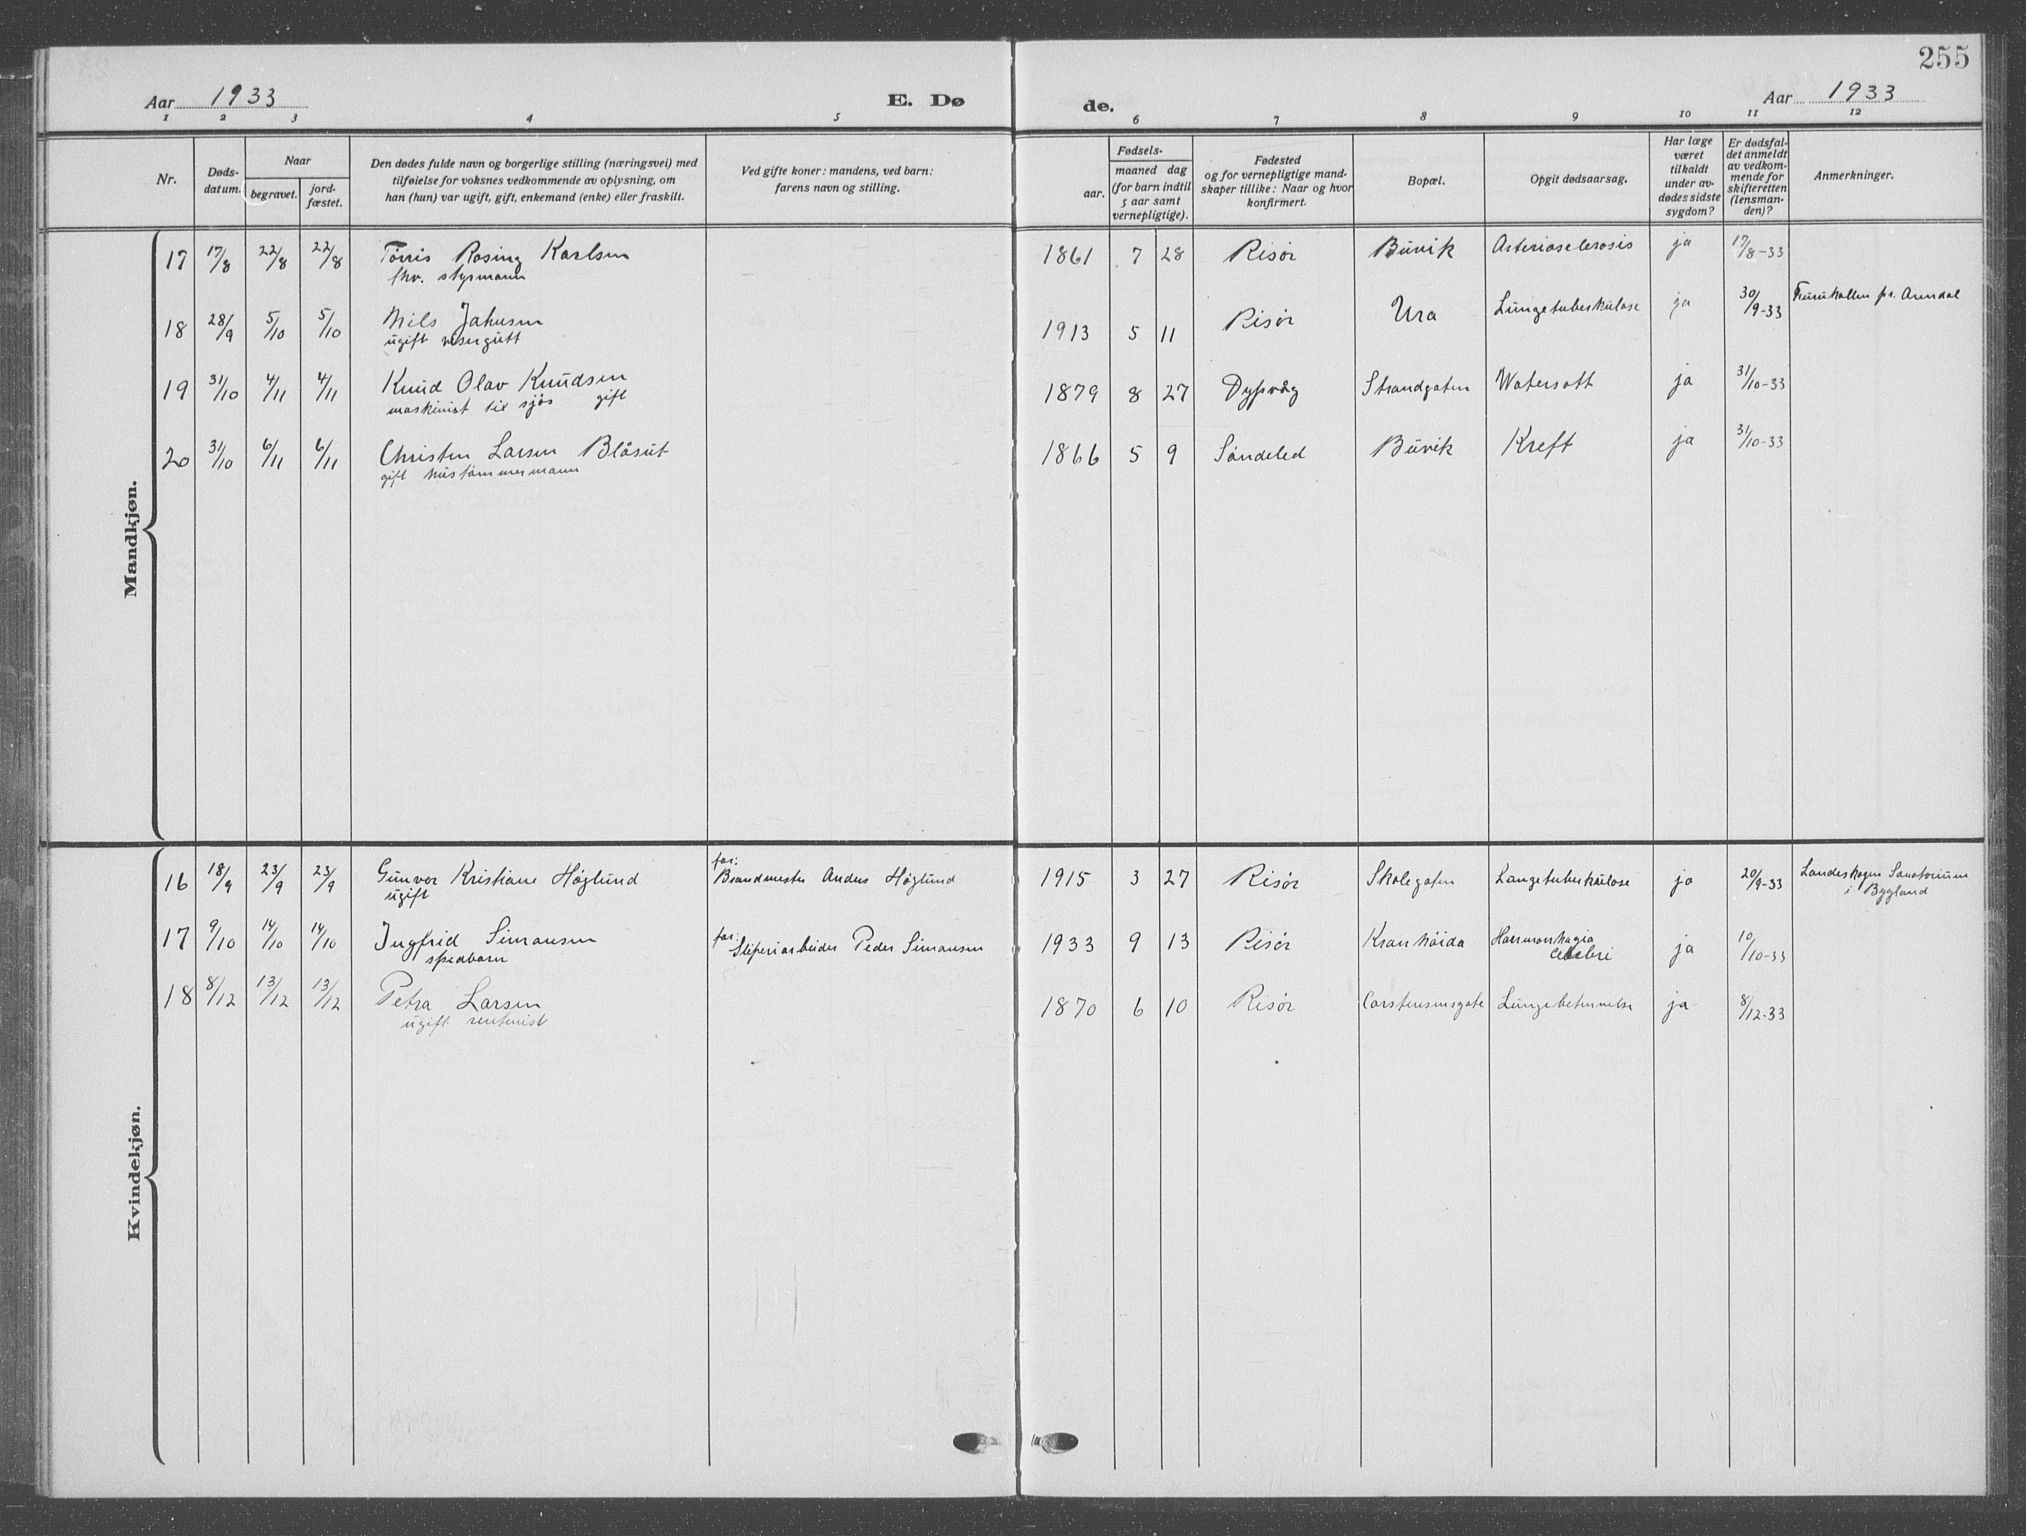 255
Aar 1933 E. Dø de. Aar 1933
1 2 3 4 5 6 7 8 9 10 11 12
Nr.
Døds-
datum.
Naar
begravet.
jord-
fæstet.
Den dødes fulde navn og borgerlige stilling (næringsvei) med
tilføielse for voksnes vedkommende av oplysning, om
han (hun) var ugift, gift, enkemand (enke) eller fraskilt.
Ved gifte koner: mandens, ved barn:
farens navn og stilling.
Fødsels-
aar.
maaned dag
(for barn indtil
5 aar samt
vernepligtige).
Fødested
og for vernepligtige mand-
skaper tillike: Naar og hvor
konfirmert.
Bopæl.
Opgit dødsaarsag.
Har læge
været
tilkaldt
under av-
dødes sidste
sygdom?
Er dødsfal-
det anmeldt
av vedkom-
mende for
skifteretten
(lensman-
den)?
Anmerkninger.
Mandkjøn.
17 17/8 22/8 22/8 Tørris Rosing Karlsen 1861 7 28 Risør Buvik Arterioselerosis ja 17/8-33
fhv. styrmann
18 28/9 5/10 5/10 Nils Jahnsen 1913 5 11 Risør Ura Lungetuberkulose ja 30/9-33 Furukollen pr. Arendal
ugift visergutt
19 31/10 4/11 4/11 Knud Olav Knudsen 1879 8 27 Dypvåg Strandgaten Watersott ja 31/10-33
maskinist til sjøs gift
20 31/10 6/11 6/11 Christen Larsen Blåsut 1866 5 9 Søndeled Buvik Kreft ja 31/10-33
gift hustømmermann
Kvindekjøn.
16 18/9 23/9 23/9 Gunvor Kristiane Høglund far: 1915 3 27 Risør Skolegaten Lungetuberkulose ja 20/9-33 Landeskogen Sanatorium
ugift Brandmester Anders Høglund i Bygland
17 9/10 14/10 14/10 Ingfrid Simonsen far: 1933 9 13 Risør Kranheida ja 10/10-33
spedbarn Sliperiarbeider Peder Simonsen
18 8/12 13/12 13/12 Petra Larsen 1870 6 10 Risør Carstensensgate Lungebetennelse ja 8/12-33
ugift rentenist